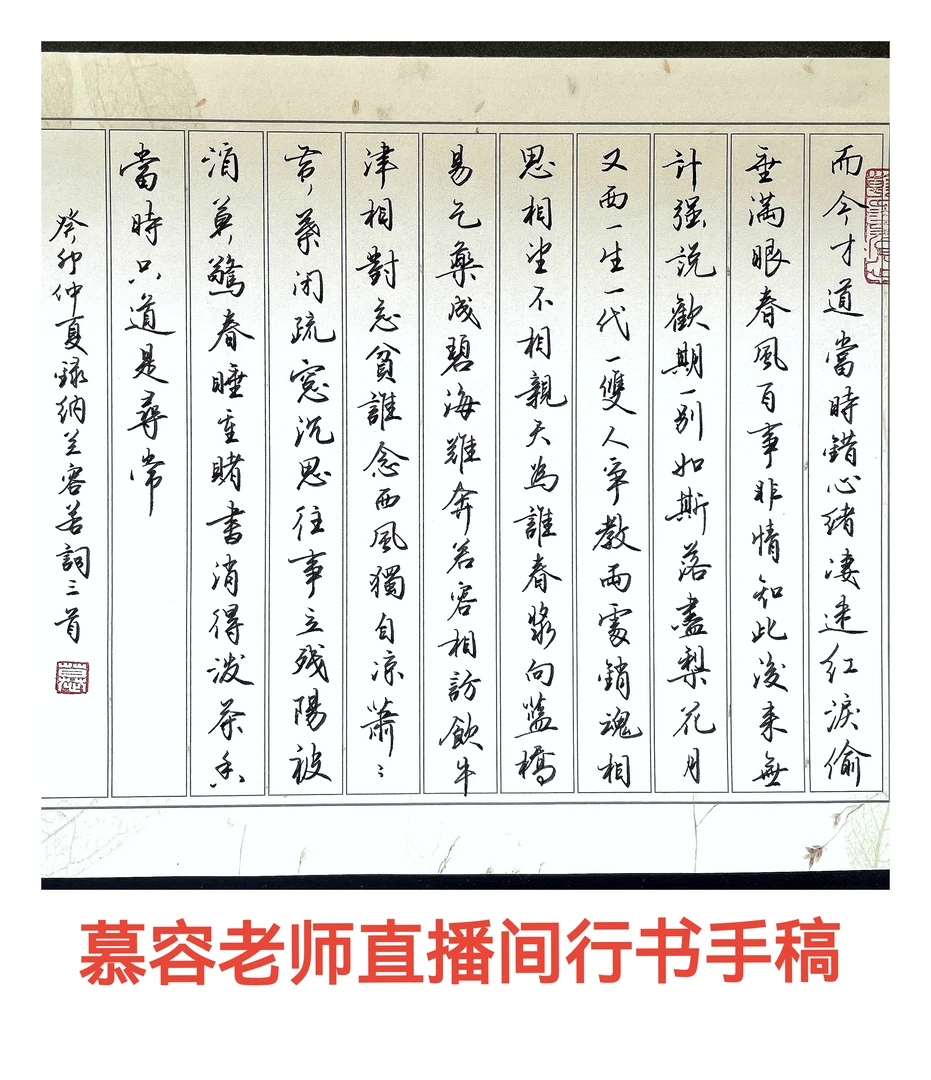 而今才道當時錯心緒凄迷紅淚偷
垂滿眼春風百事非情知此後来無
計强説歡期一别如斯落盡梨花月
又西一生一代一雙人爭教兩處銷魂相
思相望不相親天為誰春漿向藍橋
易乞藥成碧海難奔若容相訪飲牛
津相對忘貧誰念西風獨自凉蕭〻
黄葉闭疏窓沉思往事立残陽被
酒莫驚春睡重賭書消得潑茶香
當時只道是尋常
癸卯仲夏録纳兰容若詞三首
慕容老师直播间行书手稿